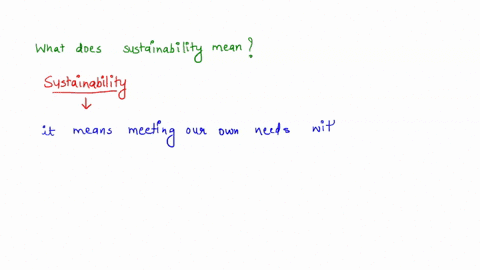 What does sustainability mean?
Sustainability
it means meeting our own needs wit